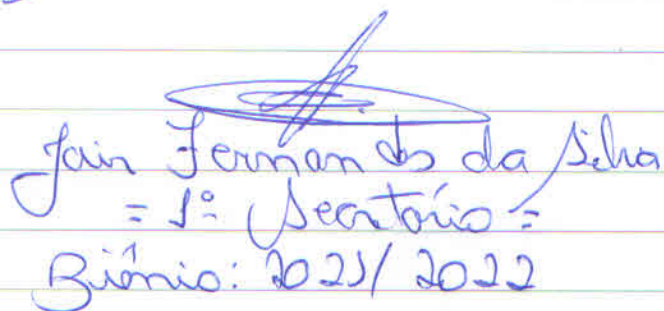 Jair Fernandes da Silva
= 1º Secretário =
Biênio: 2021/2022